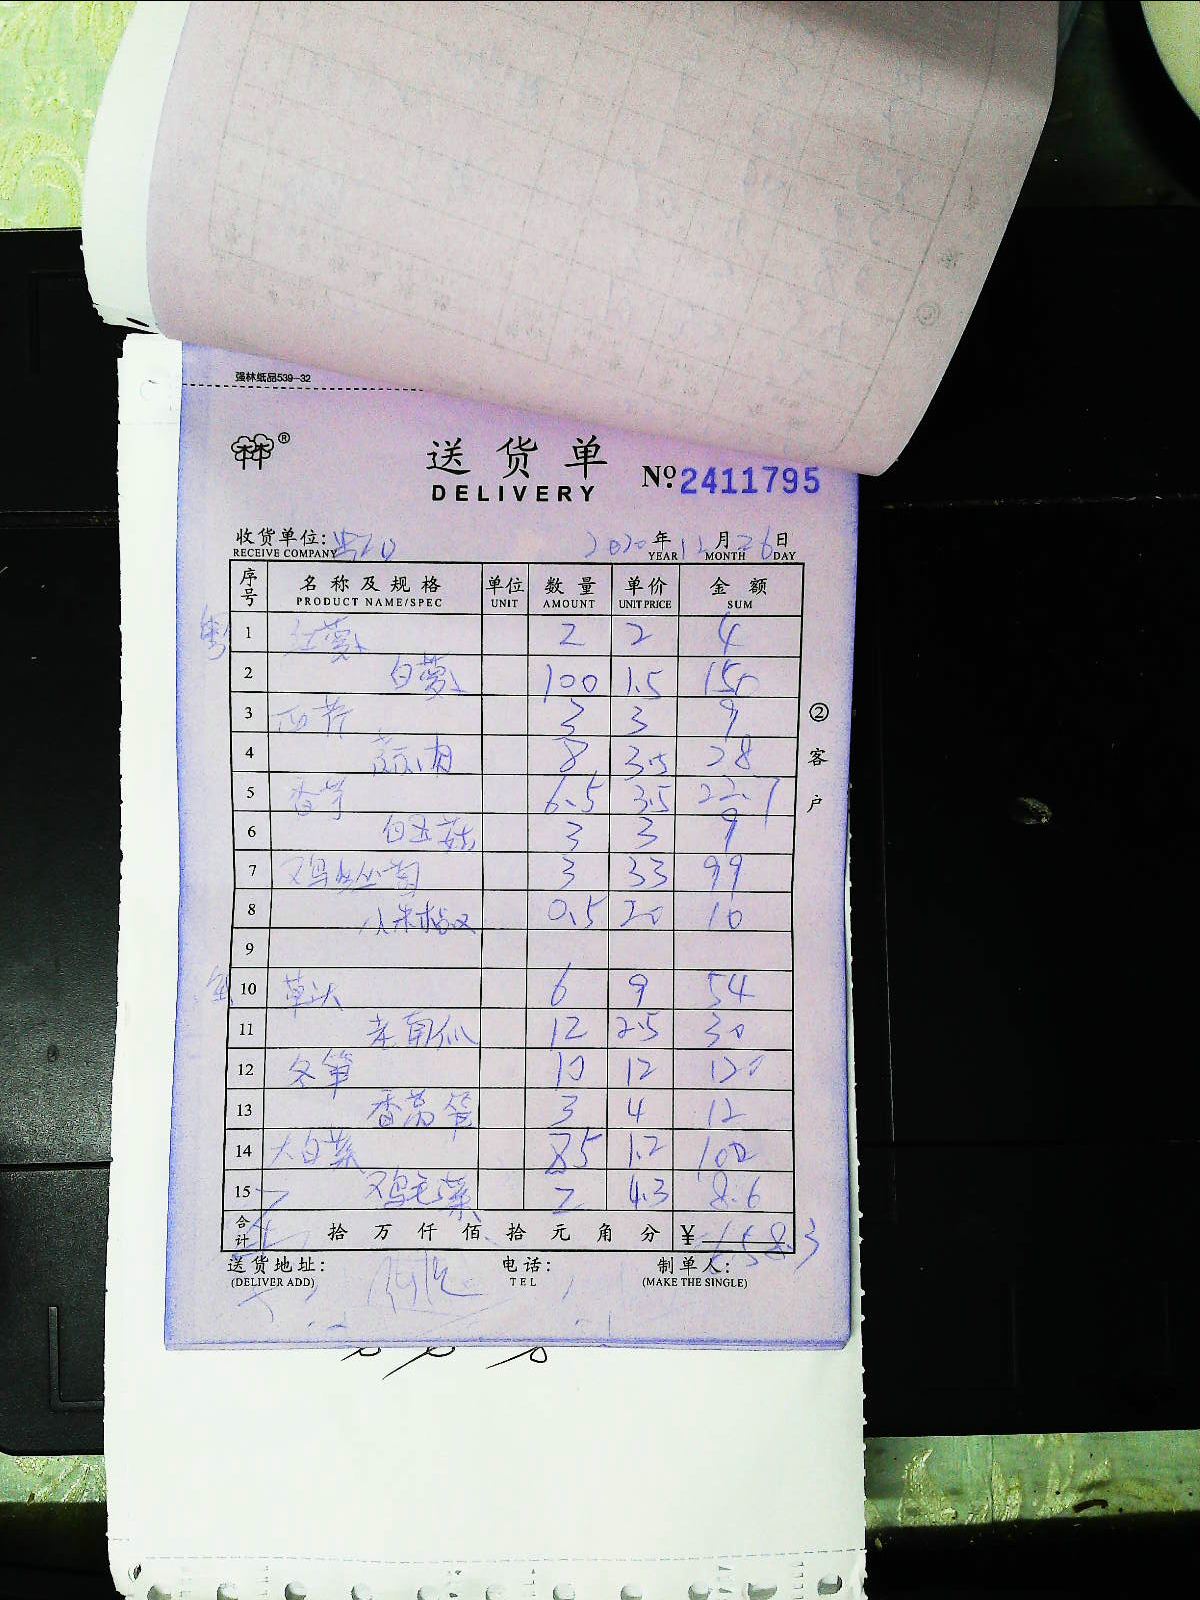 强林纸品539-32
送货单 №2411795
DELIVERY
收货单位: 2020年12月26日
RECEIVE COMPANY YEAR MONTH DAY
序号 名称及规格 单位 数量 单价 金额
PRODUCT NAME/SPEC UNIT AMOUNT UNIT PRICE SUM
1 红萝卜 2 2 4
2 白萝卜 100 1.5 150
3 西芹 3 3 9
4 8 3.5 28
5 香芋 6.5 3.5 22.7
6 白玉菇 3 3 9
7 鸡丝丛菌 3 33 99
8 小米椒 0.5 20 10
9
10 草头 6 9 54
11 老南瓜 12 2.5 30
12 冬笋 10 12 120
13 香莴笋 3 4 12
14 大白菜 85 1.2 102
15 鸡毛菜 2 4.3 8.6
合计 拾万仟佰拾元角分 ¥ 658.3
②客户
送货地址: 电话: 制单人:
(DELIVER ADD) TEL (MAKE THE SINGLE)